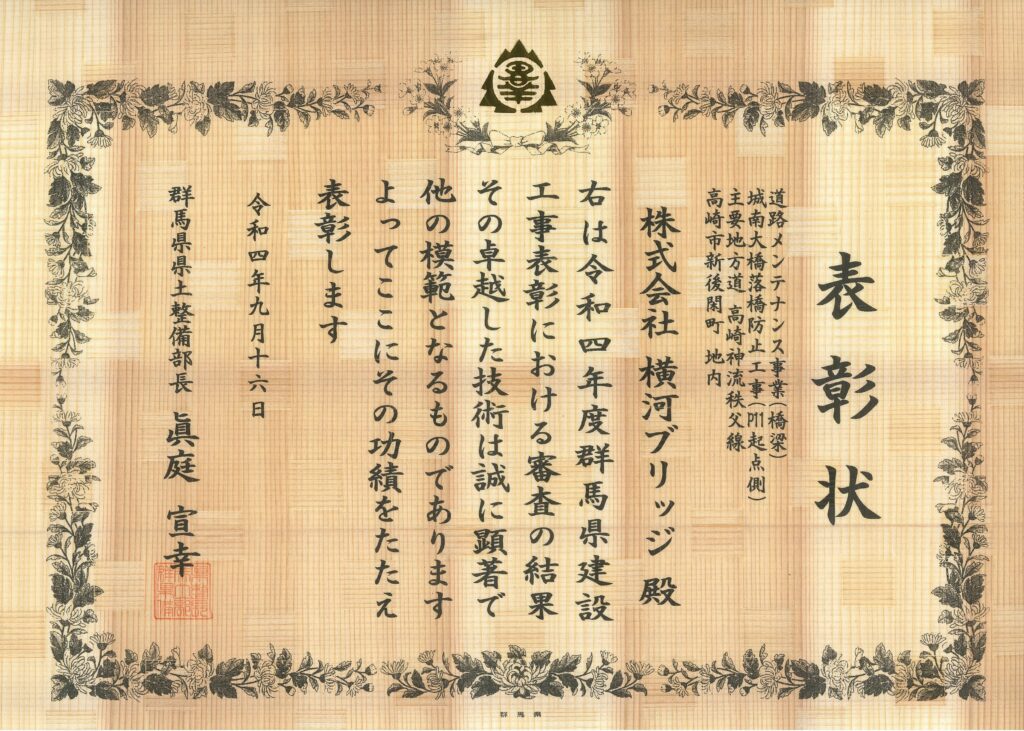 表彰状
道路メンテナンス事業(橋梁)
城南大橋落橋防止工事(P11起点側)
主要地方道 高崎神流秩父線
高崎市新後閑町 地内
株式会社 横河ブリッジ 殿
右は令和四年度群馬県建設
工事表彰における審査の結果
その卓越した技術は誠に顕著で
他の模範となるものであります
よってここにその功績をたたえ
表彰します
令和四年九月十六日
群馬県県土整備部長 眞庭 宣幸
群馬県